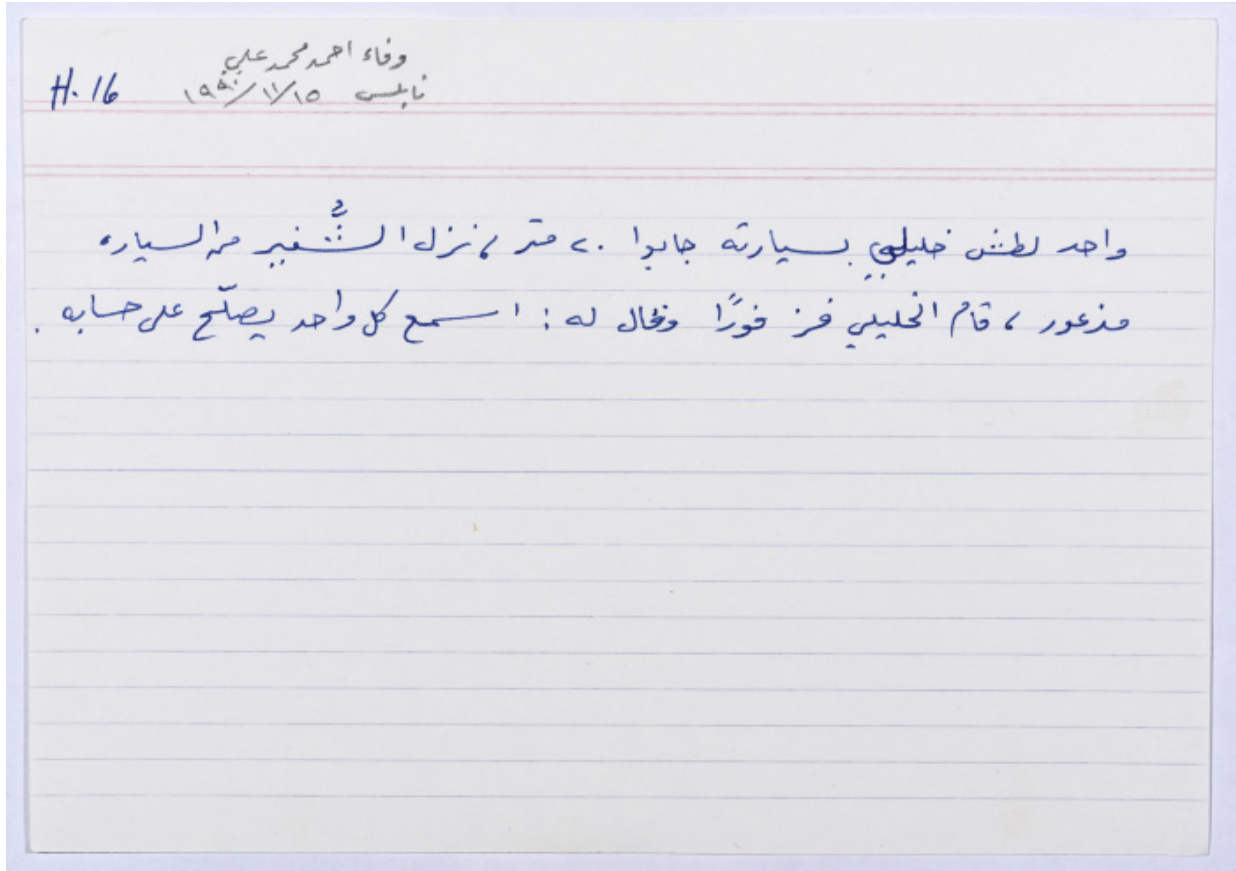 وفاء احمد محمد علي
H.16 نابلس ١٩٩٠/١١/١٥
واحد لطش خليلي بسيارته جابوا ٢٠ متر ، نزل الشُّفير من السياره
مذعور ، قام الخليلي فز فورًا وقال له : اسمع كل واحد يصلّح على حسابه .